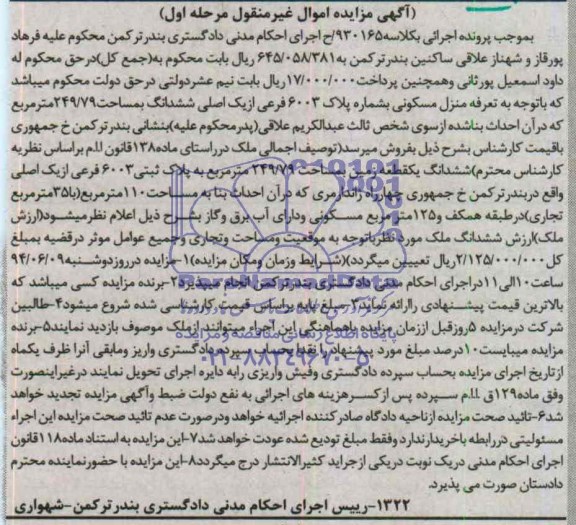 (آگهی مزایده اموال غیرمنقول مرحله اول)
بموجب پرونده اجرائی بکلاسه۹۳۰۱۶۵/ج اجرای احکام مدنی دادگستری بندرترکمن محکوم علیه فرهاد
پورقاز و شهناز علاقی ساکنین بندرترکمن به۶۴۵/۰۵۸/۳۸۱ ریال بابت محکوم به(جمع کل)درحق محکوم له
داود اسمعیل پورثانی وهمچنین پرداخت۱۷/۰۰۰/۰۰۰ریال بابت نیم عشردولتی درحق دولت محکوم میباشد
که باتوجه به تعرفه منزل مسکونی بشماره پلاک ۶۰۰۳ فرعی ازیک اصلی ششدانگ بمساحت۲۴۹/۷۹مترمربع
که درآن احداث بناشده ازسوی شخص ثالث عبدالکریم علاقی(پدرمحکوم علیه)بنشانی بندرترکمن خ جمهوری
باقیمت کارشناس بشرح ذیل بفروش میرسد(توصیف اجمالی ملک درراستای ماده۱۳۸قانون ا.ا.م براساس نظریه
کارشناس محترم)ششدانگ یکقطعه زمین بمساحت ۲۴۹/۷۹ مترمربع به پلاک ثبتی۶۰۰۳ فرعی ازیک اصلی
واقع دربندرترکمن خ جمهوری چهارراه راندارمری که درآن احداث بنا به مساحت۱۱۰مترمربع(با۳۵مترمربع
تجاری)درطبقه همکف و۱۲۵مترمربع مسکونی ودارای آب برق وگاز بشرح ذیل اعلام نظرمیشود(ارزش
ملک)ارزش ششدانگ ملک مورد نظرباتوجه به موقعیت ومساحت وتجاری وجمیع عوامل موثر درقضیه بمبلغ
کل۲/۱۲۵/۰۰۰/۰۰۰ریال تعیین میگردد)(شرایط وزمان ومکان مزایده)۱-مزایده درروزدوشنبه۹۴/۰۶/۰۹
ساعت۱۰الی۱۱دراجرای احکام مدنی دادگستری بندرترکمن انجام میپذیرد۲-برنده مزایده کسی میباشد که
بالاترین قیمت پیشنهادی راارائه نماید۳-مبلغ پایه براساس قیمت کارشناسی شده شروع میشود۴-طالبین
شرکت درمزایده ۵روزقبل اززمان مزایده باهماهنگی این اجراء میتوانند ازملک موصوف بازدید نمایند۵-برنده
مزایده میبایست۱۰درصد مبلغ مورد پیشنهاد را نقدا بحساب سپرده دادگستری واریز ومابقی آنرا ظرف یکماه
ازتاریخ اجرای مزایده بحساب سپرده دادگستری وفیش واریزی رابه دایره اجرای تحویل نمایند درغیراینصورت
وفق ماده۱۲۹ق ا.ا.م سپرده پس ازکسرهزینه های اجرائی به نفع دولت ضبط وآگهی مزایده تجدید خواهد
شد۶-تائید صحت مزایده ازناحیه دادگاه صادرکننده اجرائیه خواهد ودرصورت عدم تائید صحت مزایده این اجراء
مسئولیتی دررابطه باخریدارندارد وفقط مبلغ تودیع شده عودت خواهد شد۷-این مزایده به استناد ماده۱۱۸قانون
اجرای احکام مدنی دریک نوبت دریکی ازجراید کثیرالانتشار درج میگردد۸-این مزایده با حضورنماینده محترم
دادستان صورت می پذیرد.
۱۳۲۲-رییس اجرای احکام مدنی دادگستری بندرترکمن-شهواری
پایگاه اطلاع رسانی مناقصه و مزایده